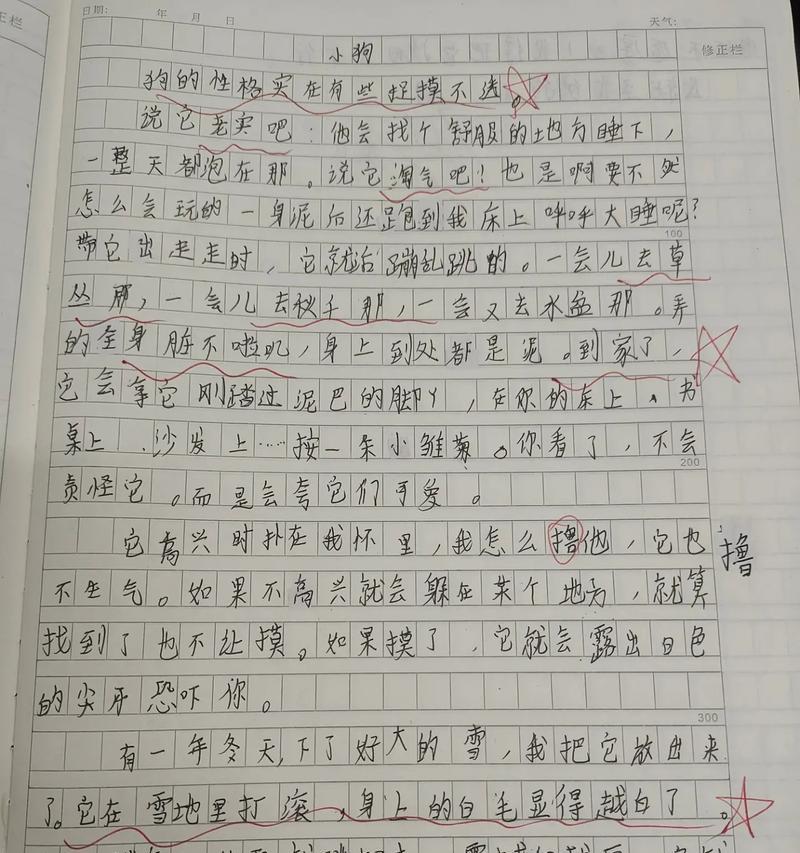 日期: 年 月 日 天气:
修正栏
小狗
狗的性格实在有些捉摸不透。
说它老实吧:他会找个舒服的地方睡下,
一整天都泡在那。说它淘气吧!也是啊要不然
怎么会玩的一身泥后还跑到我床上呼呼大睡呢?
100
带它出走走时,它就活蹦乱跳的。一会儿去草
丛那,一会儿去秋千那,一会又去水盆那。弄
的全身脏不啦叽,身上到处都是泥。到家了,
它会拿它刚踏过泥巴的脚丫,在你的床上、书
桌上、沙发上……按一朵小雏菊。你看了,不会
200
责怪它。而是会夸它们可爱。
它高兴时扑在我怀里,我怎么撸他,它也
撸
不生气。如果不高兴就会躲在某个地方,就算
找到了也不让摸。如果摸了,它就会露出白色
的尖牙恐吓你。
300
有一年冬天,下了好大的雪,我把它放出来
了。它在雪地里打滚,身上的白毛显得越白了。